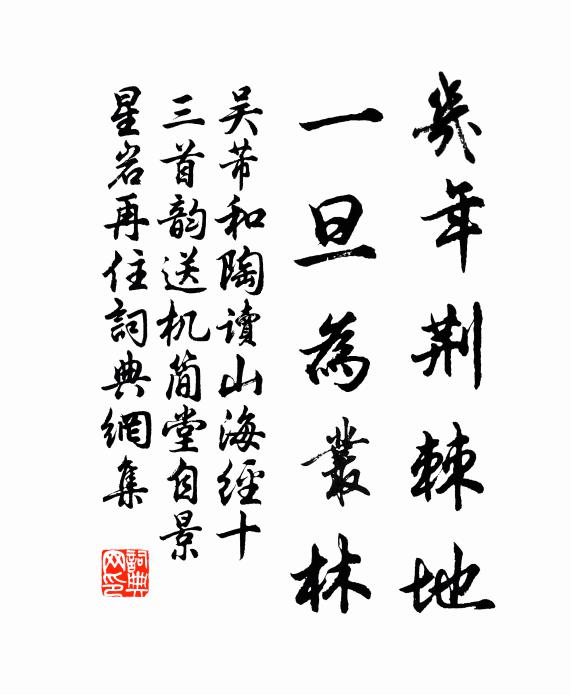 幾年荆棘地
一旦為叢林
吴芾和陶讀山海經十
三首韵送机简堂自景
星岩再住詞典網集
詞典网印